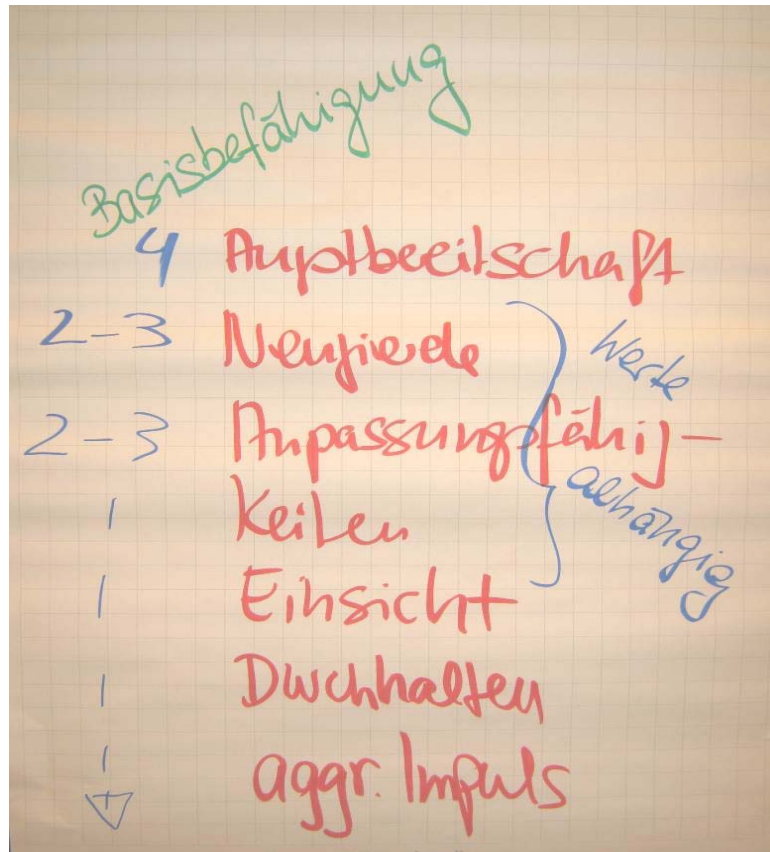 Basisbefähigung
4 Angstbereitschaft
2-3 Neugierde
2-3 Anpassungsfähig-
keiten
Einsicht
Durchhalten
aggr. Impuls
Werte
abhängig